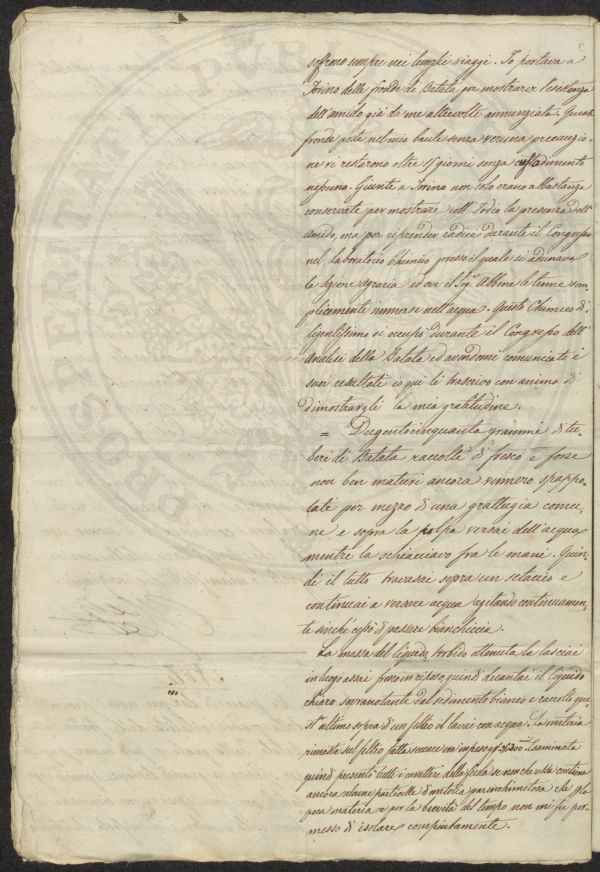 soffrono sempre nei lunghi viaggi. Io portava a
Torino delle fronde di Batata per mostrarvi l'esistenza
dell'amido già da me altrevolte annunziata. Queste
fronde poste nel mio baule senza veruna precauzio-
ne vi restarono oltre 15 giorni senza dimento
nessuno. Giunte a Torino non solo erano abbastanza
conservate per mostrare coll'Iodio la presenza dell'
amido, ma per riprender radici durante il Congresso
nel laboratorio Chimico presso il quale si adunava
la sezione agraria ed ove il Sig.r Abbene le tenne sem-
plicemente immerse nell'acqua. Questo Chimico di-
ligentissimo si occupò durante il Congresso dell'
analisi della Batata ed avendomi comunicato i
suoi resultati io qui li trascrivo con animo di
dimostrargli la mia gratitudine.
= Dugentocinquanta grammi di tu-
beri di Batata raccolti di fresco e forse
non ben maturi ancora vennero spappo-
lati per mezzo di una grattugia comu-
ne e sopra la polpa versai dell'acqua
mentre la schiacciavo fra le mani. Quin-
di il tutto travasai sopra un setaccio e
continuai a versare acqua agitando continuamen-
te sinchè cessò di passare bianchiccia.
La massa del liquido torbido ottenuta la lasciai
in luogo assai fresco in riposo quindi decantai il liquido
chiaro sovranotante dal sedimento bianco e raccolto que-
st'ultimo sopra di un filtro il lavai con acqua. La materia
rimasta sul filtro fatta seccare era in peso Esaminata
quindi presentò tutti i caratteri della fecola se non che essa contiene
ancora alcune particelle di materia parenchimatosa che
poca materia e per la brevità del tempo non mi fu per-
messo di isolare compiutamente.